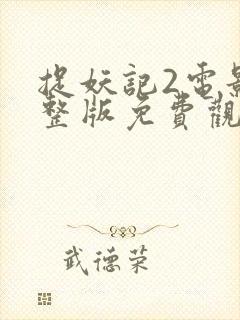 捉妖記2電影
整版免費觀
武德荣